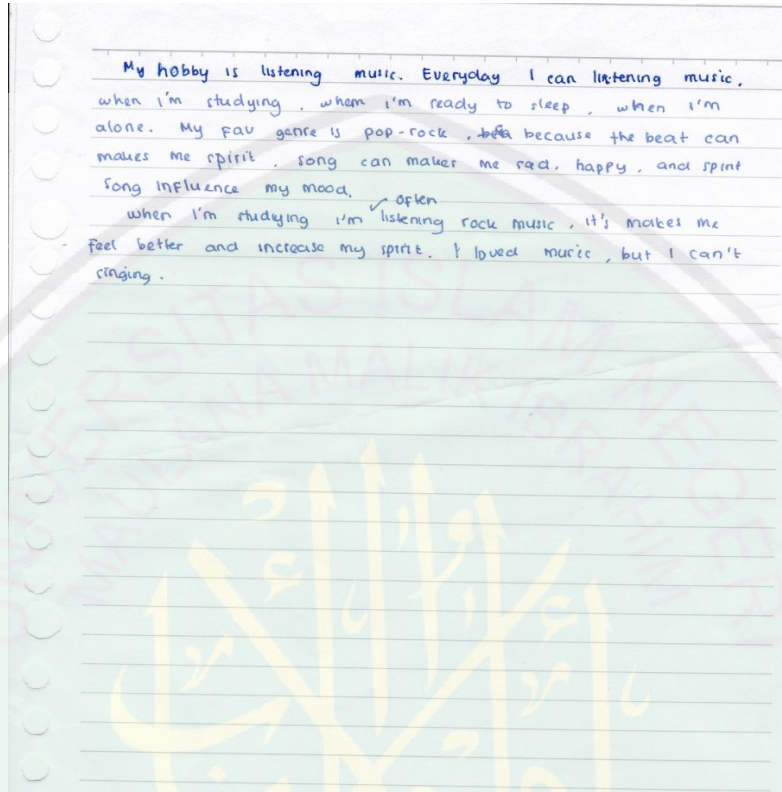 My hobby is listening music. Everyday I can listening music.
when i'm studying, when i'm ready to sleep, when i'm
alone. My fav genre is pop-rock, because the beat can
makes me spirit. song can makes me sad, happy, and spirit
song influence my mood.
often
when i'm studying i'm listening rock music, it's makes me
feel better and increase my spirit. I loved music, but I can't
singing.
UNIVERSITAS ISLAM NEGERI
MAULANA MALIK IBRAHIM